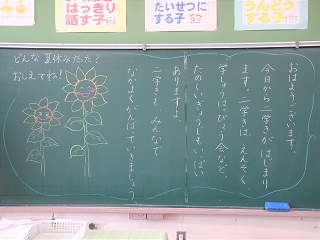 はっきり
話す子
たいせつに
する子
うんどう
する子
どんな夏休みだった?
おしえてね!
おはようございます。
今日から二学きがはじまり
ます。二学きは、えんそく
学しゅうはっぴょう会など、
たのしいぎょうじも、いっぱい
ありますよ。
二学きも、みんなで
なかよくがんばっていきましょう